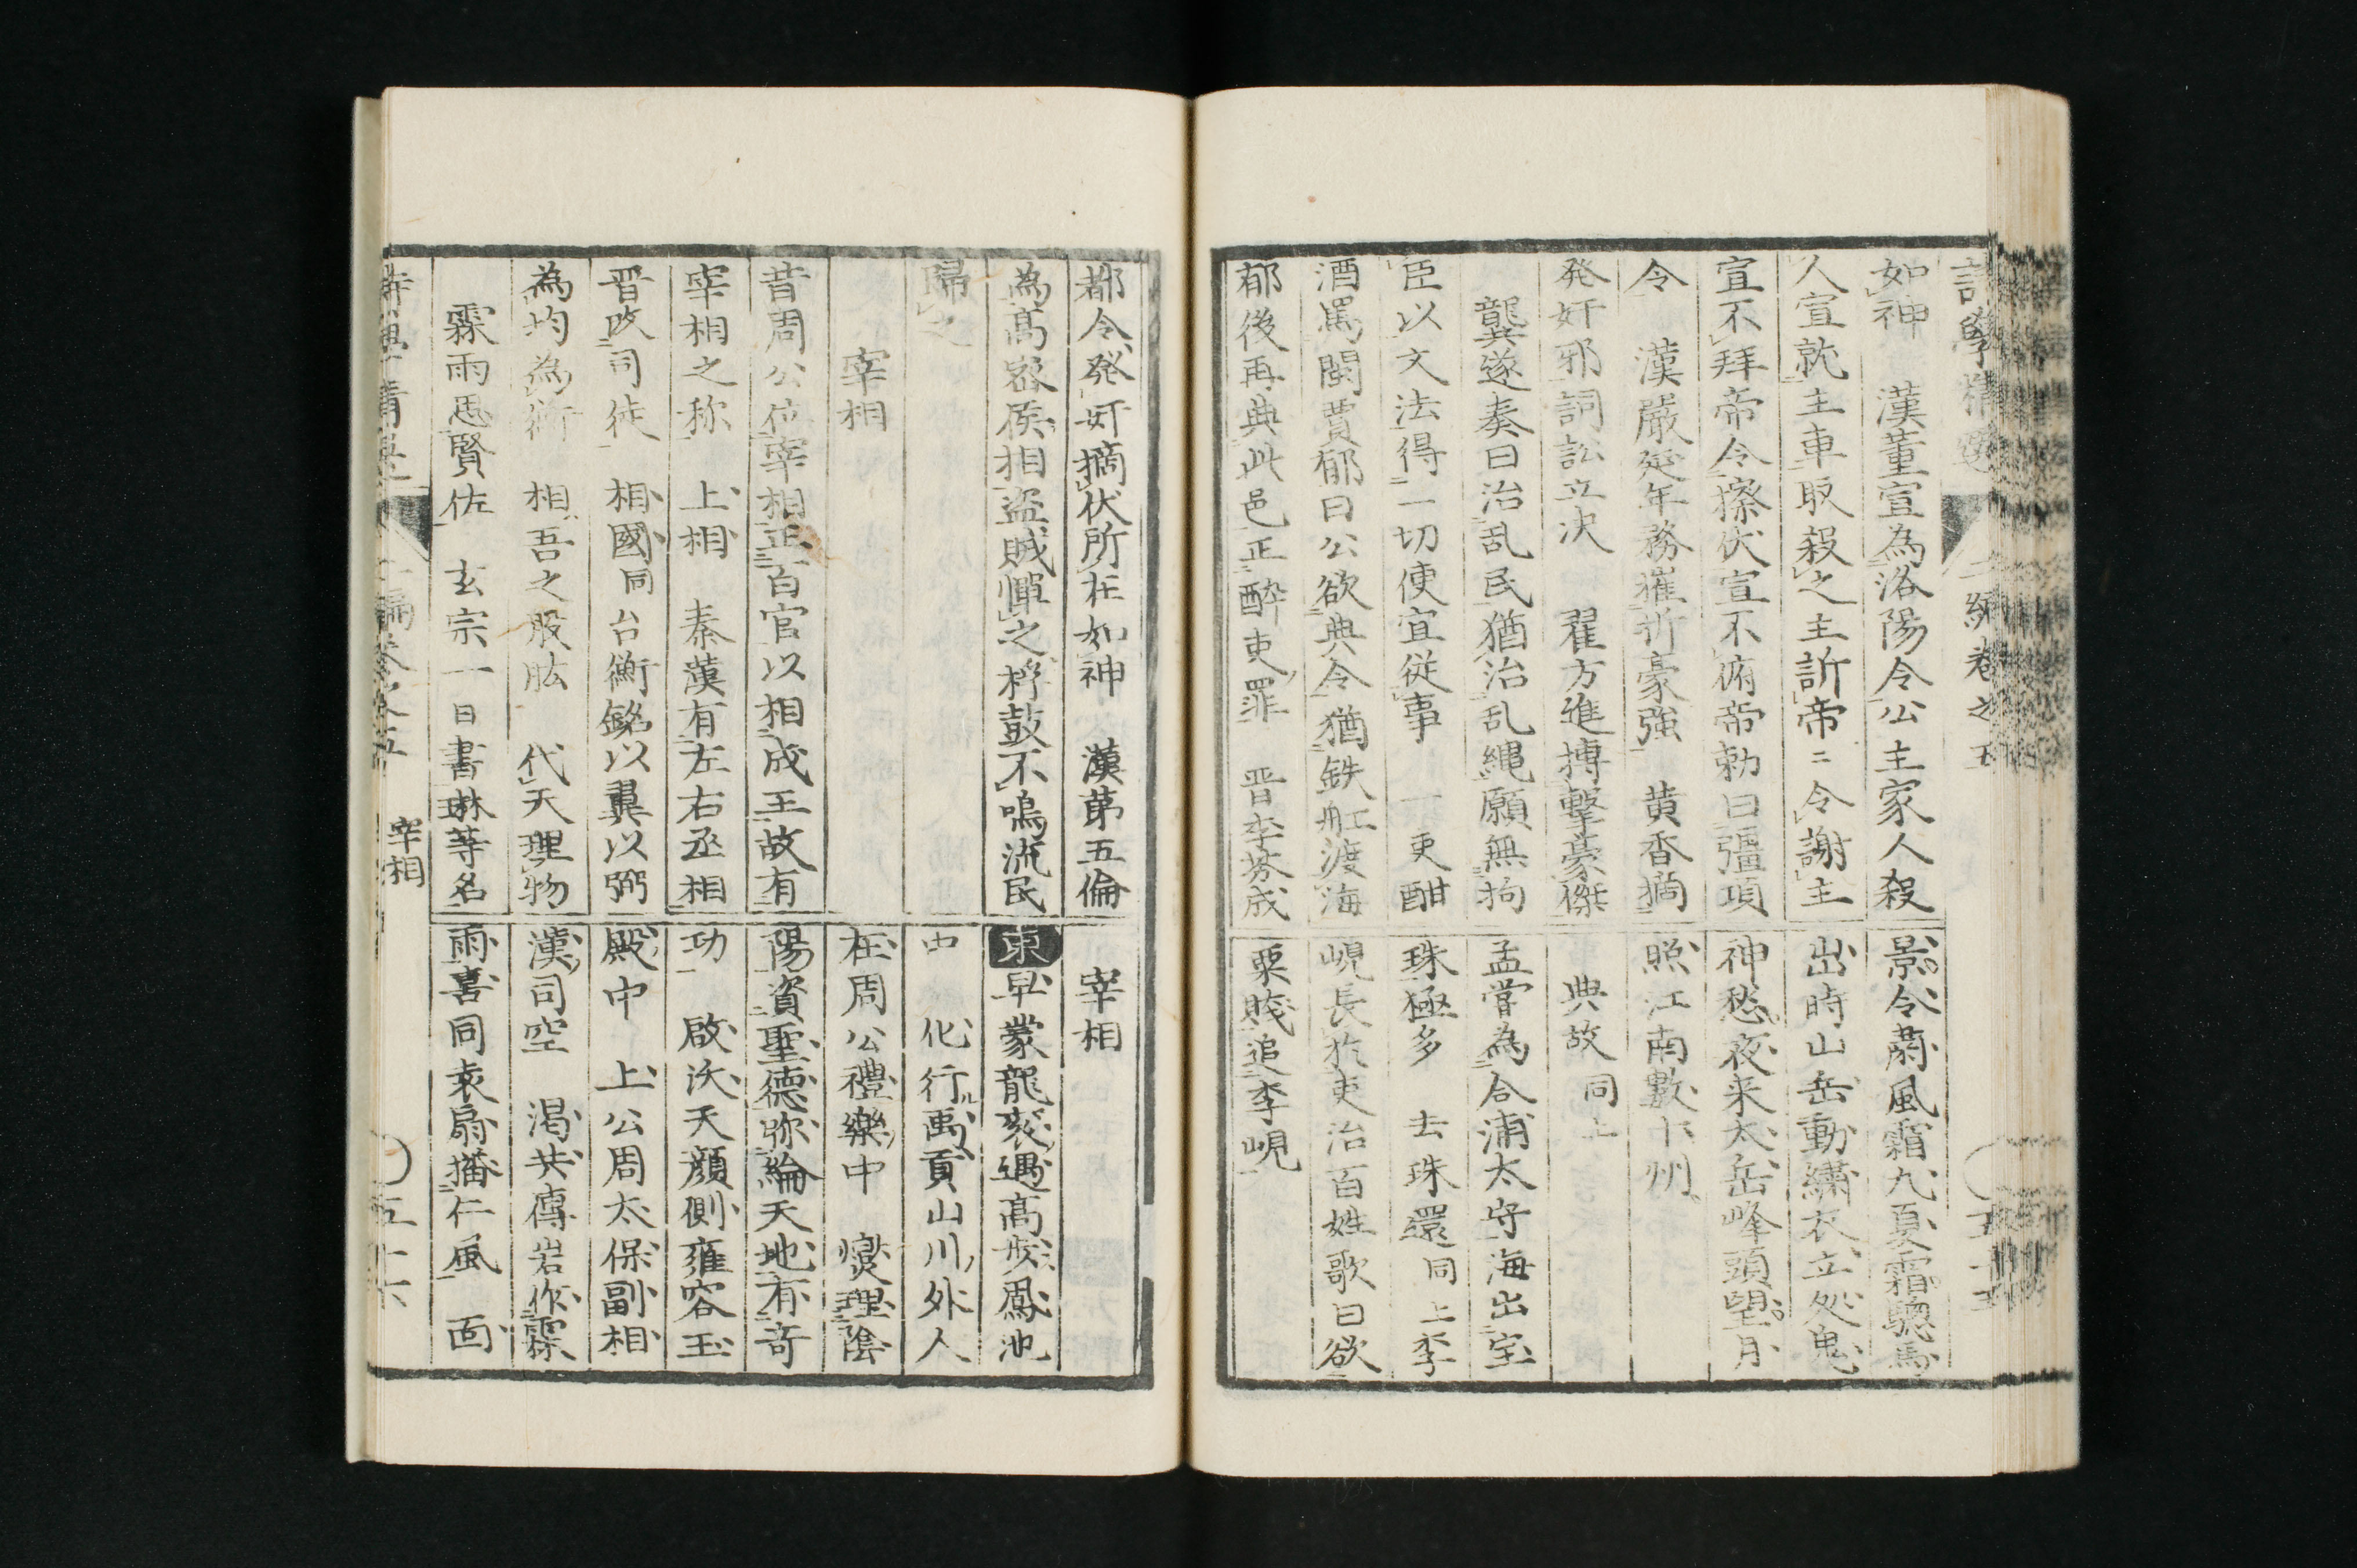 如神　漢董宣為洛陽令公主家人殺
人宣就主車取殺之主訢帝〻令謝主
宣不拜帝令撩伏宣不俯帝勅曰彊項
令　漢嚴延年務摧折豪強　黄香擿
発奸邪詞訟立決　翟方進摶擊豪傑
龔遂奏曰治乱民猶治乱縄願無拘
臣以文法得一切便宜従事　一吏酣
酒罵闋賈郁曰公欲典令猶鉄舡渡海
郁後再典此邑正醉吏罪　晋李芬成
景令蕭風霜九夏霜驄馬
出時山岳動繡衣立処鬼
神愁夜来太岳峰頭望月
照江南數十州
典故同上
孟嘗為合浦太守海出宝
珠極多　去珠還同上李
峴長於吏治百姓歌曰欲
粟賤追李峴
都令発奸擿伏所在如神　漢第五倫
為高密侯相盗賊憚之桴鼓不鳴流民
歸之
宰相
昔周公位宰相正百官以相成王故有
宰相之称　上相　秦漢有左右丞相
晋改司徒　相國同台衡銘以翼以弼
為均為衡　相吾之股肱　代天理物
霖雨思賢佐　玄宗一日書琳等名
宰相
東早蒙龍衮遇高步鳳池
中　化行禹貢山川外人
在周公禮樂中　燮理陰
陽資聖德弥綸天地有奇
功　啟沃天顔側雍容玉
殿中　上公周太保副相
漢司空　渇共傅岩作霖
雨喜同袁扇播仁風　面
宰相